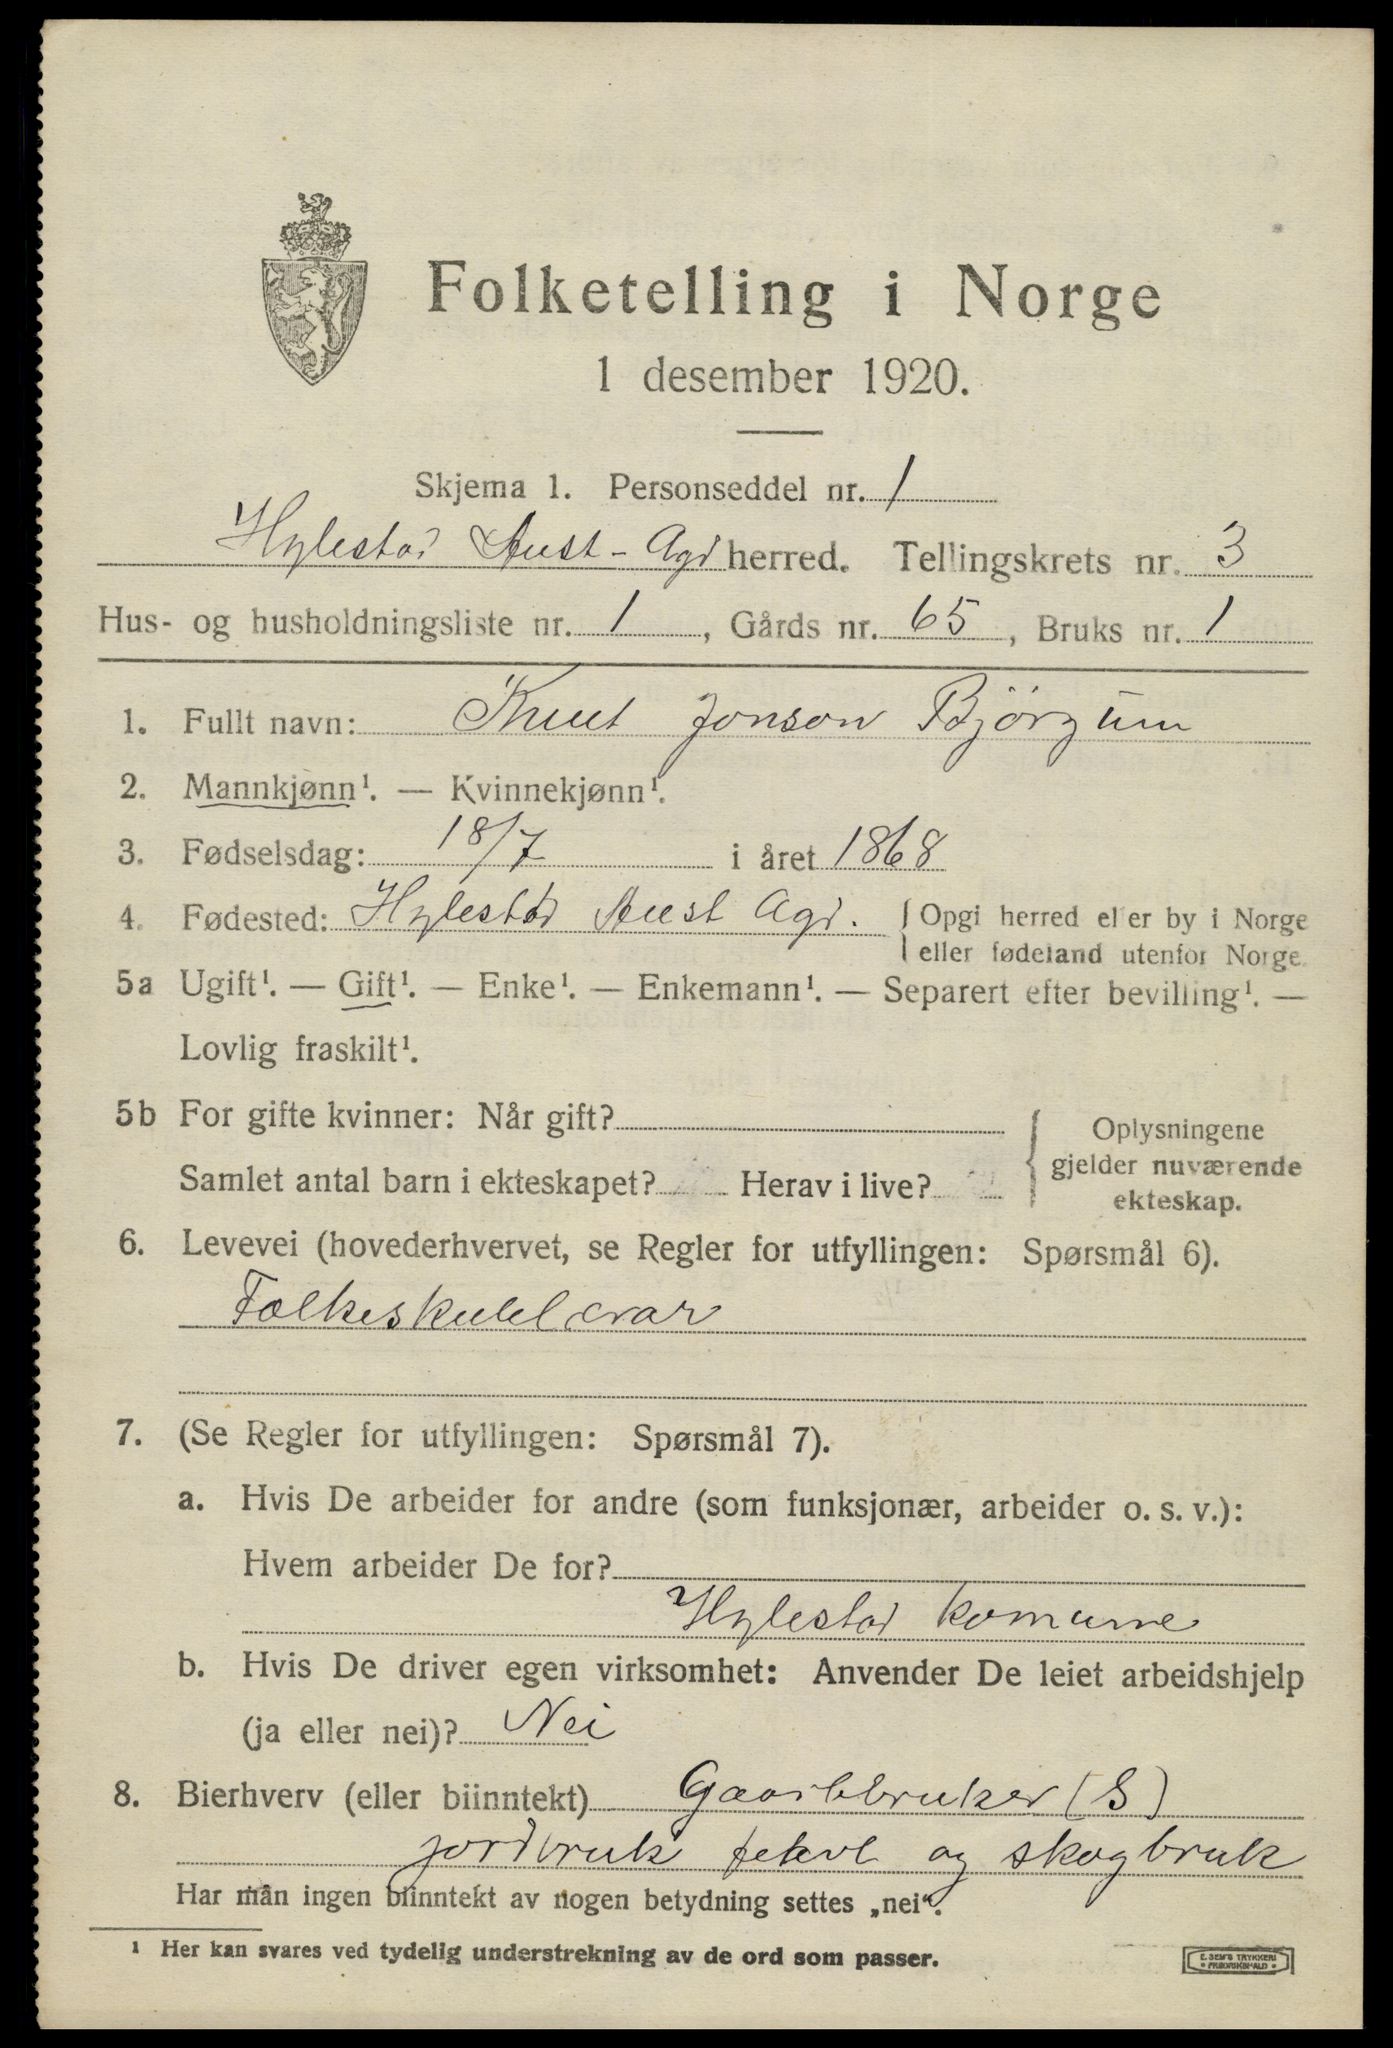 Folketelling i Norge
1 desember 1920.
Skjema 1. Personseddel nr. 1
Hylestad Aust-Agd herred. Tellingskrets nr. 3
Hus- og husholdningsliste nr. 1, Gårds nr. 65, Bruks nr. 1
1. Fullt navn: Knut Jonson Bjørgum
2. Mannkjønn¹. — Kvinnekjønn¹.
3. Fødselsdag: 18/7 i året 1868
4. Fødested: Hylestad Aust Agd. { Opgi herred eller by i Norge
eller fødeland utenfor Norge.
5a Ugift¹. — Gift¹. — Enke¹. — Enkemann¹. — Separert efter bevilling¹. —
Lovlig fraskilt¹.
5b For gifte kvinner: Når gift?
Samlet antal barn i ekteskapet? Herav i live?
Oplysningene
gjelder nuværende
ekteskap.
6. Levevei (hovederhvervet, se Regler for utfyllingen: Spørsmål 6).
Folkeskullærar
7. (Se Regler for utfyllingen: Spørsmål 7).
a. Hvis De arbeider for andre (som funksjonær, arbeider o. s. v.):
Hvem arbeider De for?
Hylestad komune
b. Hvis De driver egen virksomhet: Anvender De leiet arbeidshjelp
(ja eller nei)? Nei
8. Bierhverv (eller biinntekt) Gaardbruker (S)
jordbruk feavl og skogbruk
Har man ingen biinntekt av nogen betydning settes „nei“.
1 Her kan svares ved tydelig understrekning av de ord som passer.
E. SEM'S TRYKKERI
FREDRIKSHALD